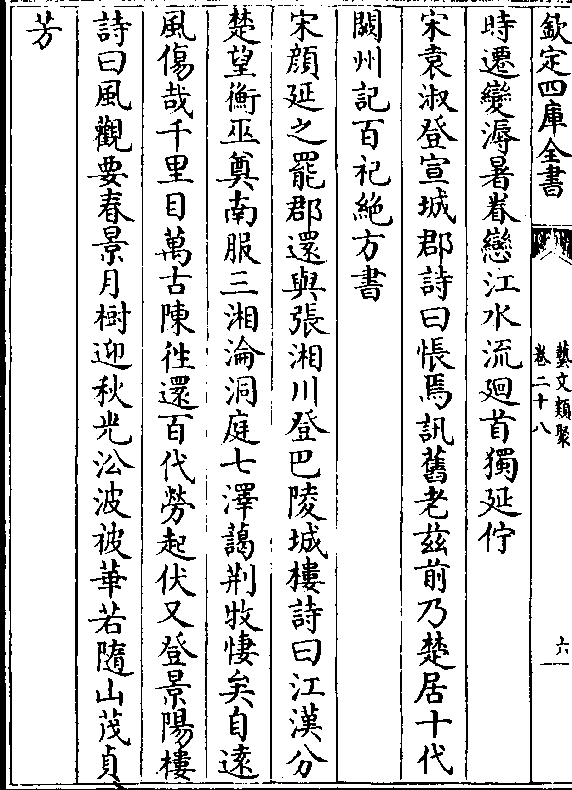 欽定四庫全書
藝文類聚
卷二十八
六
時遷變溽暑眷戀江水流廻首獨延佇
宋袁淑登宣城郡詩曰悵焉訊舊老兹前乃楚居十代
闕州記百祀絶方書
宋顔延之罷郡還與張湘川登巴陵城樓詩曰江漢分
楚望衡巫奠南服三湘淪洞庭七澤藹荆牧悽矣自逺
風傷哉千里目萬古陳徃還百代勞起伏又登景陽樓
詩曰風觀要春景月樹迎秋光㳂波被華若隨山茂貞
芳